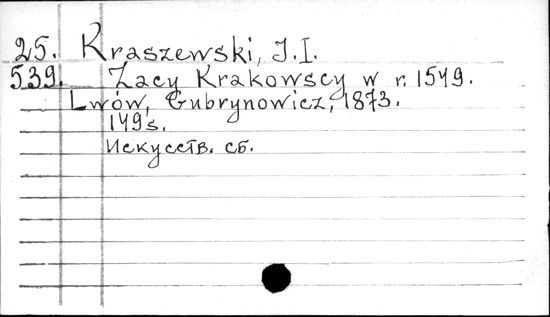 25. Kraszewski, J.I.
539. Żacy Krakowscy w r. 1549.
Lwów, Gubrynowicz, 1873.
149 s.
Искусств. сб.